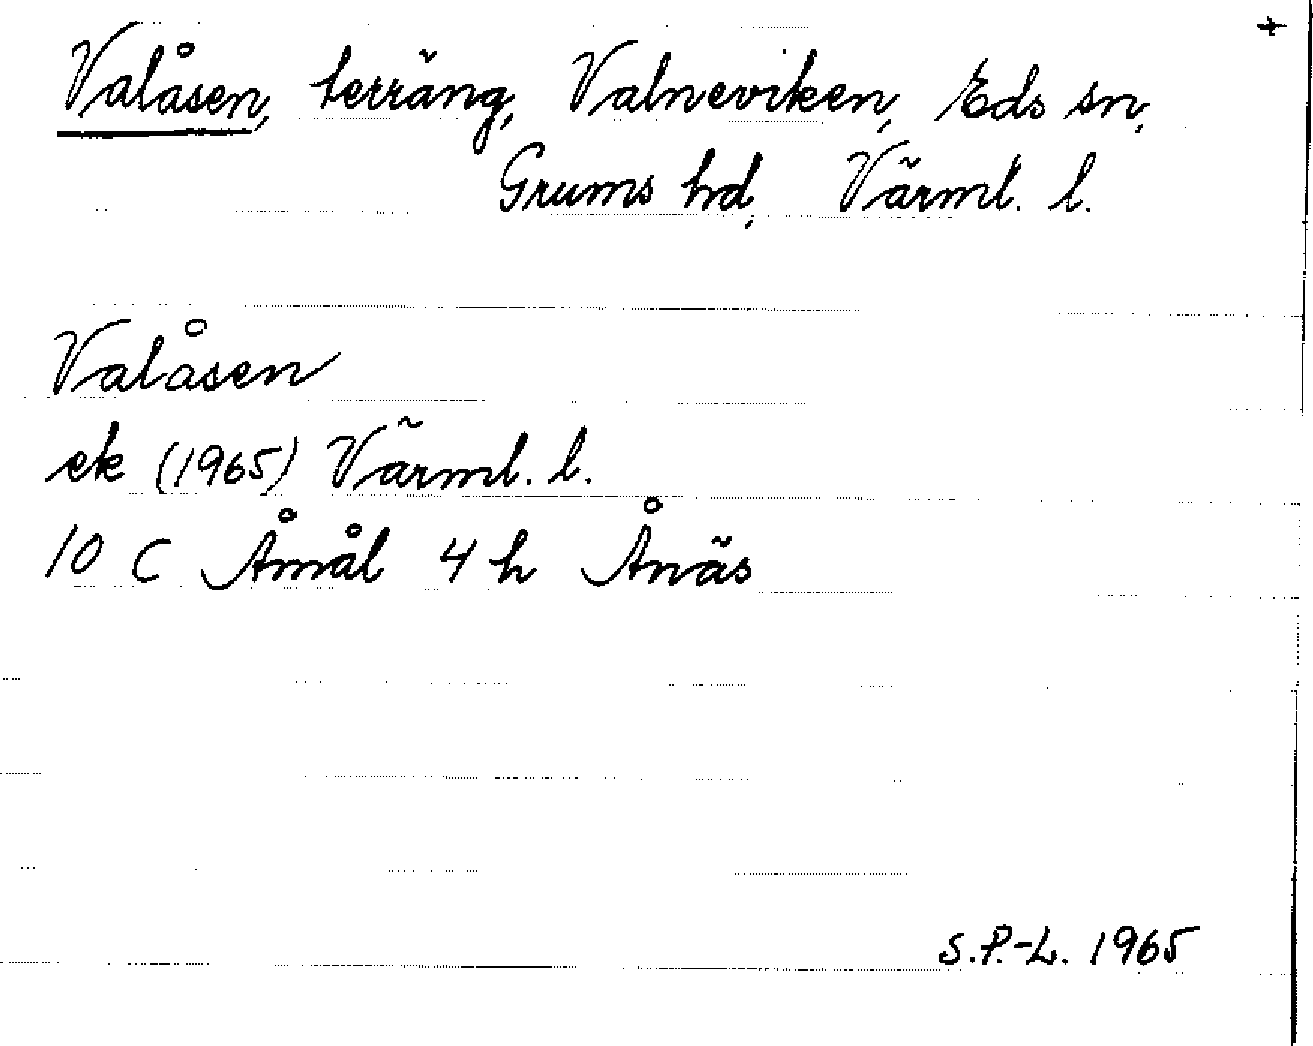 +
Valåsen, terräng, Valneviken, Eds sn,
Grums hd, Värml. l.
Valåsen
ek (1965) Värml. l.
10 C Åmål 4 h Ånäs
S.P.-L. 1965